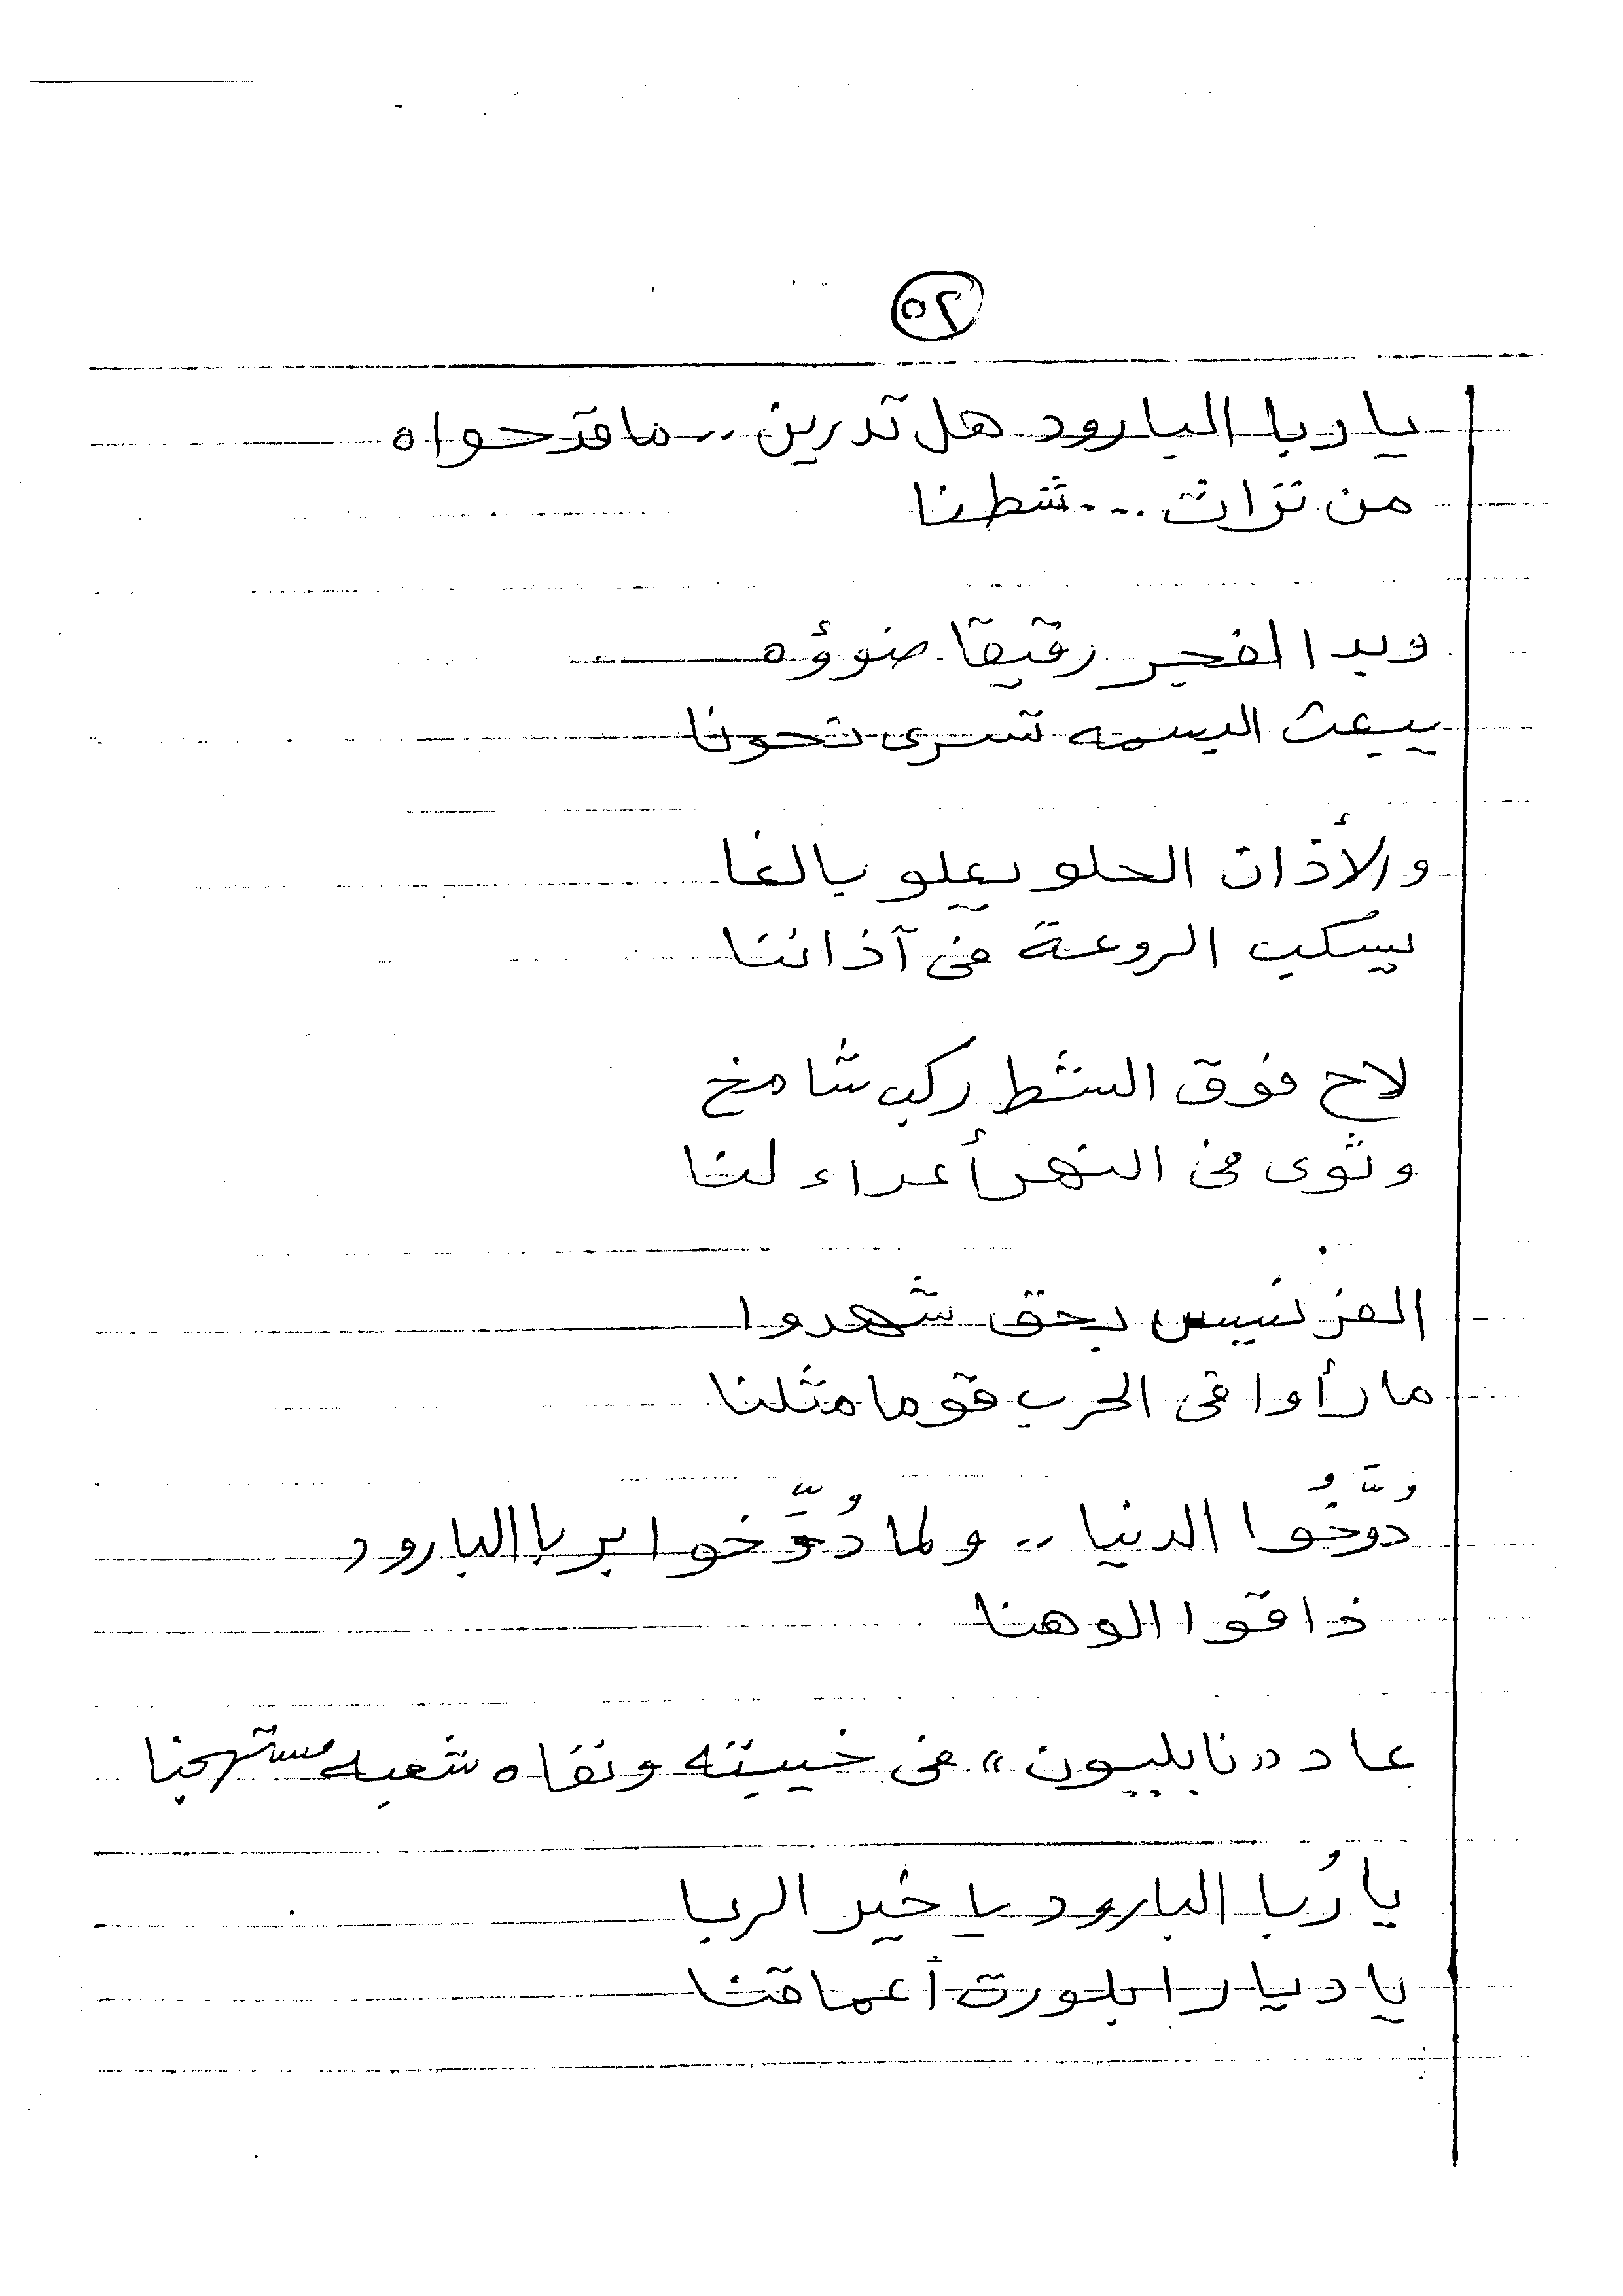 ٥٢
يا ربا البارود هل تدرين .. ما قد حواه
من تراث ... شطنا
وبدا الفجر رقيقا ضوؤه
يبعث البسمه تسرى نحونا
والأذان الحلو يعلو بالغا
يسكب الروعة فى آذاننا
لاح فوق الشط ركب شامخ
وثوى فى النهر أعداء لنا
الفرنسيس بحق شهدوا
ما رأوا فى الحرب قوما مثلنا
دُوَّخُوا الدنيا .. ولما دُوِّخوا بربا البارود
ذاقوا الوهنا
عاد «نابليون» فى خيبته ونفاه شعبه مستهجنا
يا رُبا البارود يا خير الربا
يا ديارا بلورت أعماقنا